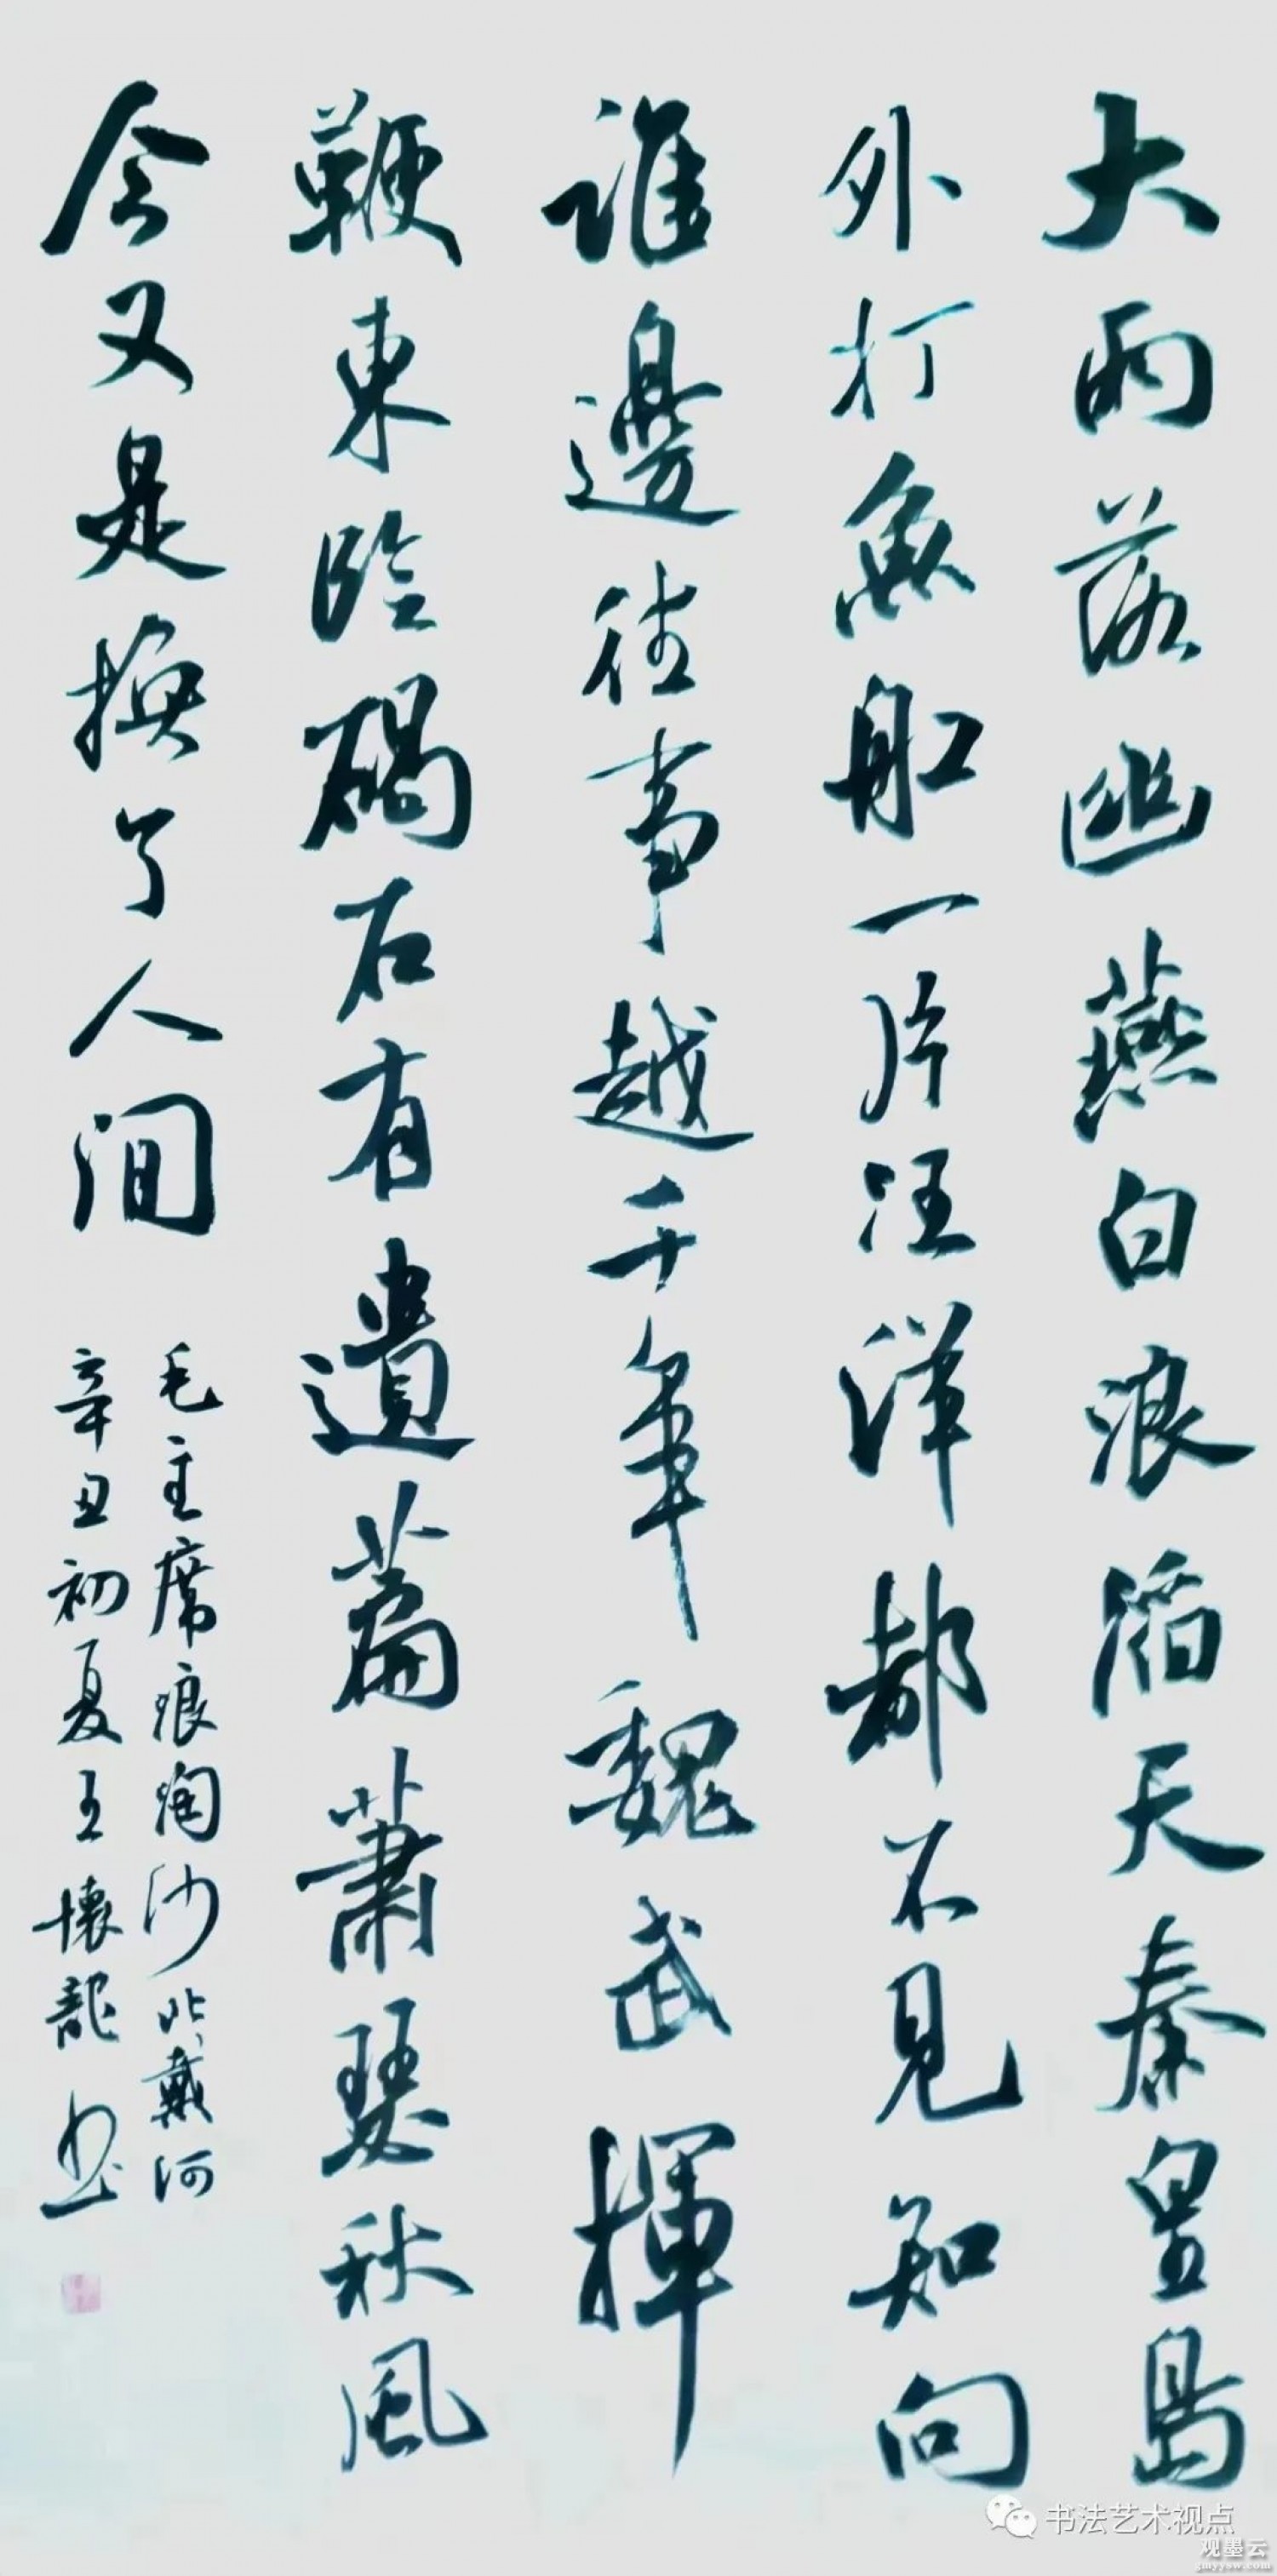 大雨落幽燕白浪滔天秦皇島
外打魚船一片汪洋都不見知向
誰邊往事越千年魏武揮
鞭東臨碣石有遺篇蕭瑟秋風
今又是換了人間
毛主席浪淘沙北戴河
辛丑初夏王懷龍書
书法艺术视点
观墨云
gmyysw.com